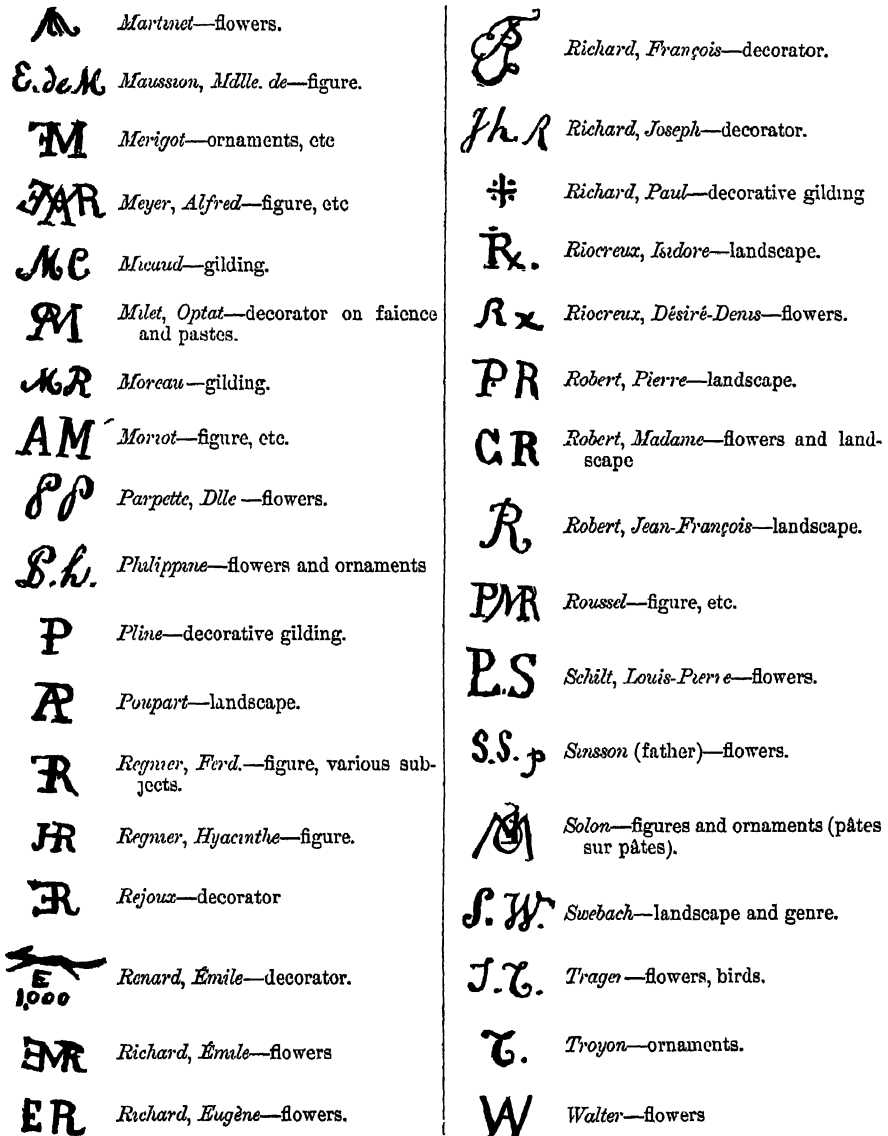 Martinet—flowers.
E. de M. Maussion, Mdlle. de—figure.
Merigot—ornaments, etc
Meyer, Alfred—figure, etc
MC Micaud—gilding.
Milet, Optat—decorator on faience
and pastes.
MR Moreau—gilding.
AM Moriot—figure, etc.
PP Parpette, Dlle—flowers.
P.h. Philippine—flowers and ornaments
P Pline—decorative gilding.
AP Poupart—landscape.
Regnier, Ferd.—figure, various sub-
jects.
HR Regnier, Hyacinthe—figure.
Rejoux—decorator
E
1,000
Renard, Émile—decorator.
Richard, Émile—flowers
ER Richard, Eugène—flowers.
Richard, François—decorator.
Jh. R Richard, Joseph—decorator.
Richard, Paul—decorative gilding
Rx. Riocreux, Isidore—landscape.
Rx Riocreux, Désiré-Denis—flowers.
PR Robert, Pierre—landscape.
CR Robert, Madame—flowers and land-
scape
R Robert, Jean-François—landscape.
PMR Roussel—figure, etc.
P.S Schilt, Louis-Pierre—flowers.
S.S. p Sinsson (father)—flowers.
Solon—figures and ornaments (pâtes
sur pâtes).
S. W. Swebach—landscape and genre.
J.T. Trager—flowers, birds.
T. Troyon—ornaments.
W Walter—flowers